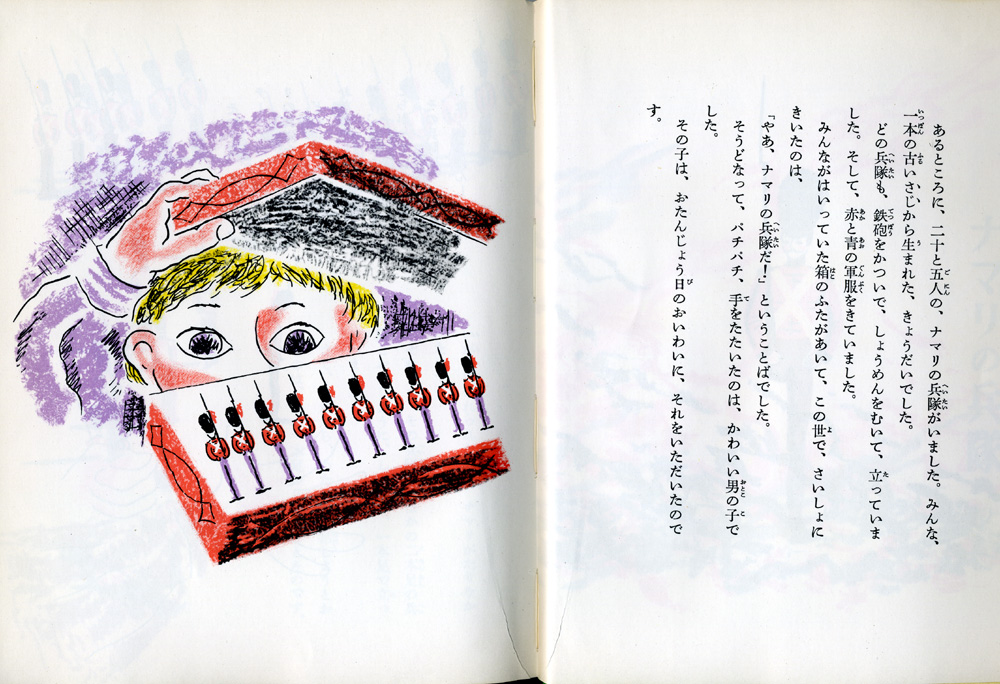 あるところに、二十と五人の、ナマリの兵隊がいました。みんな、
一本の古いさじから生まれた、きょうだいでした。
どの兵隊も、鉄砲をかついで、しょうめんをむいて、立っていま
した。そして、赤と青の軍服をきていました。
みんながはいっていた箱のふたがあいて、この世で、さいしょに
きいたのは、
「やあ、ナマリの兵隊だ！」ということばでした。
そうどなって、パチパチ、手をたたいたのは、かわいい男の子で
した。
その子は、おたんじょう日のおいわいに、それをいただいたので
す。